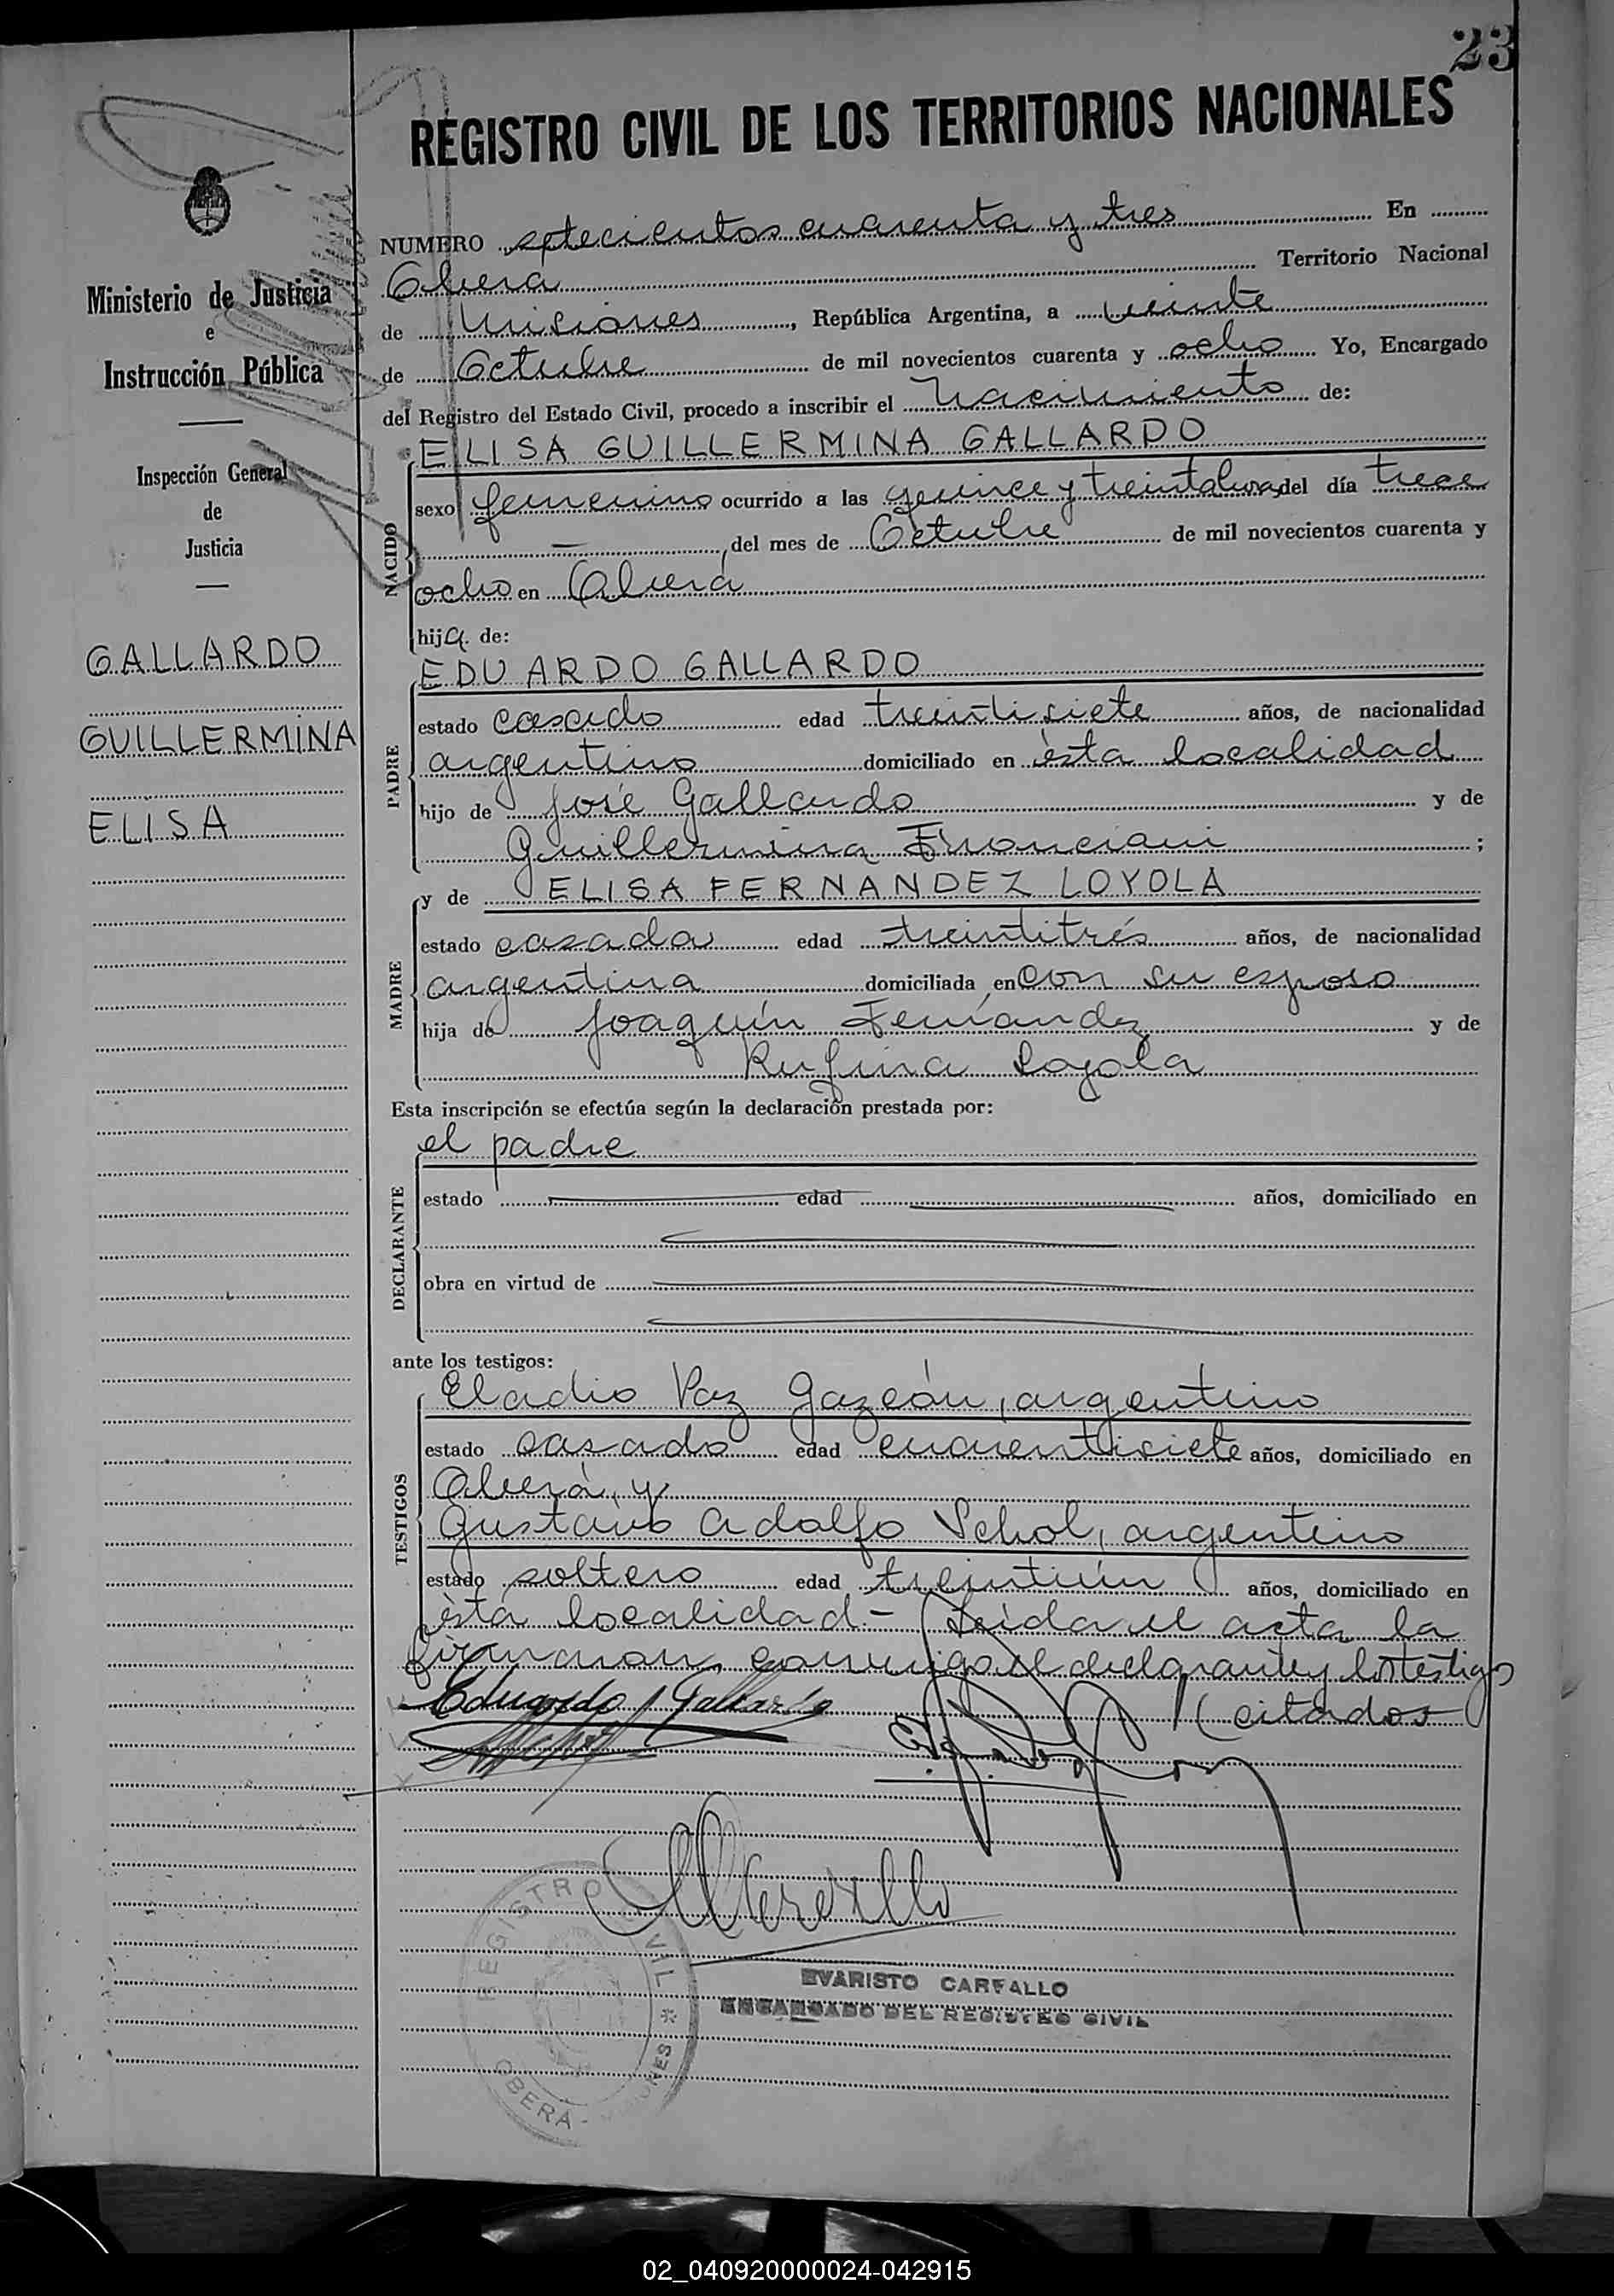 23
REGISTRO CIVIL DE LOS TERRITORIOS NACIONALES
Ministerio de Justicia
e
Instrucción Pública
Inspección General
de
Justicia
GALLARDO
GUILLERMINA
ELISA
NUMERO setecientos cuarenta y tres En
Oberá Territorio Nacional
de Misiones, República Argentina, a veinte
de Octubre de mil novecientos cuarenta y ocho Yo, Encargado
del Registro del Estado Civil, procedo a inscribir el Nacimiento de:
NACIDO
ELISA GUILLERMINA GALLARDO
sexo femenino ocurrido a las quince y treinta horas del día trece
— del mes de Octubre de mil novecientos cuarenta y
ocho en Oberá
hija de:
PADRE
EDUARDO GALLARDO
estado casado edad treintisiete años, de nacionalidad
argentino domiciliado en ésta localidad
hijo de José Gallardo y de
Guillermina ;
MADRE
y de ELISA FERNANDEZ LOYOLA
estado casada edad treintitrés años, de nacionalidad
argentina domiciliada en con su esposo
hija de Joaquín Fernandez y de
Rufina Loyola
Esta inscripción se efectúa según la declaración prestada por:
DECLARANTE
el padre
estado edad años, domiciliado en
obra en virtud de
ante los testigos:
TESTIGOS
Eladio Paz Garzón, argentino
estado casado edad cuarentisiete años, domiciliado en
Oberá, y
Gustavo Adolfo Schol, argentino
estado soltero edad treintiún años, domiciliado en
ésta localidad.- Leida el acta la
firmaron, conmigo, el declarante y los testigos
(citados
Eduardo Gallardo
REGISTRO CIVIL * OBERÁ - MISIONES
EVARISTO CARFALLO
ENCARGADO DEL REGISTRO CIVIL
02_040920000024-042915